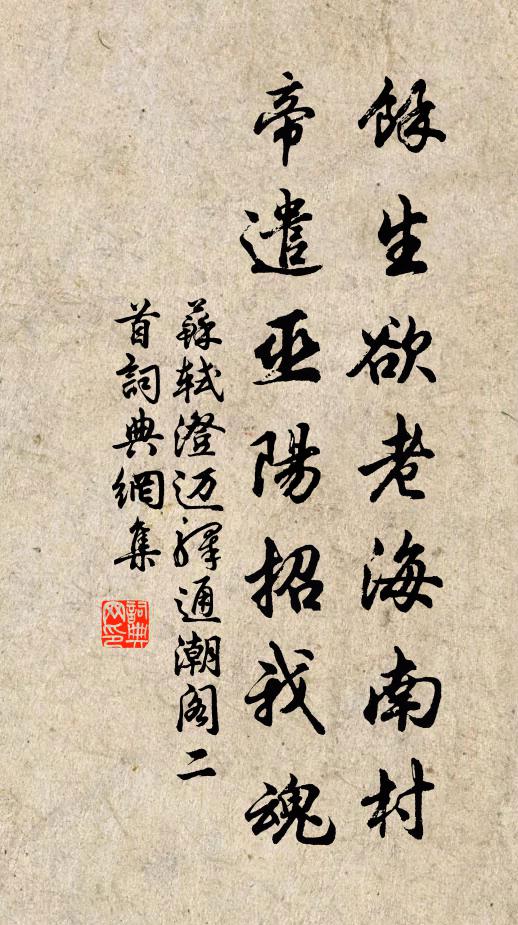 餘生欲老海南村
帝遣巫陽招我魂
蘇軾澄迈驛通潮阁二
首詞典網集
詞典
网印